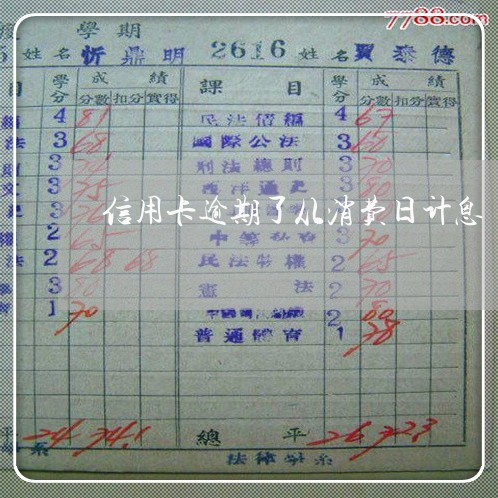 7788.com
學期
姓名 忻鼎明 2616 姓名 賈泰德
目 學分 成績 課目 學分 成績
分數 扣分 實得 分數 扣分 實得
4 81 民法債編 4 67
法 3 68 國際公法 3 60
3 刑法總則 3 70
3 75 西洋通史 3 80
信用卡逾期了从消费日计息
2 65 3 70
法 2 68 68 民法物權 2 65
3 80 憲法 2 70
1 70 2 80
普通體育 1 78
平 24 74.1 總平 26 72.3
系 法律學系